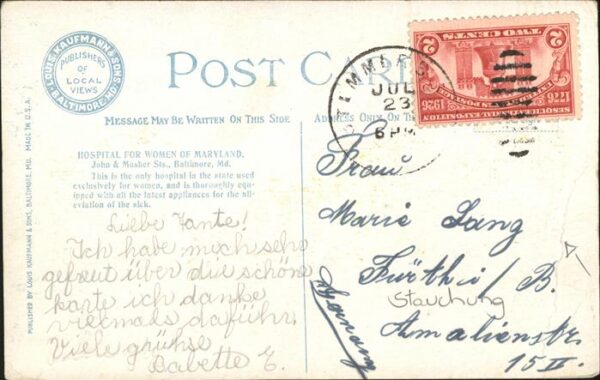 LOUIS KAUFMANN & SONS
BALTIMORE, MD.
PUBLISHERS
OF
LOCAL
VIEWS
POST CARD
MESSAGE MAY BE WRITTEN ON THIS SIDE
ADDRESS ONLY ON
HOSPITAL FOR WOMEN OF MARYLAND.
John & Mosher Sts., Baltimore, Md.
This is the only hospital in the state used
exclusively for women, and is thoroughly equi-
pped with all the latest appliances for the all-
eviation of the sick.
Liebe Tante!
Ich habe mich sehr
gefreut über die schöne
karte ich danke
vielmals daführ.
Viele grühse
Babette E.
PUBLISHED BY LOUIS KAUFMANN & SONS, BALTIMORE, MD. MADE IN U.S.A.
JUL
23
6 PM
TWO CENTS
2
2
1776
1926
SESQUICENTENNIAL EXPOSITION
Frau
Marie Lang
Fürth i/B.
Stauchung
Amalienstr.
15 II.
Germany